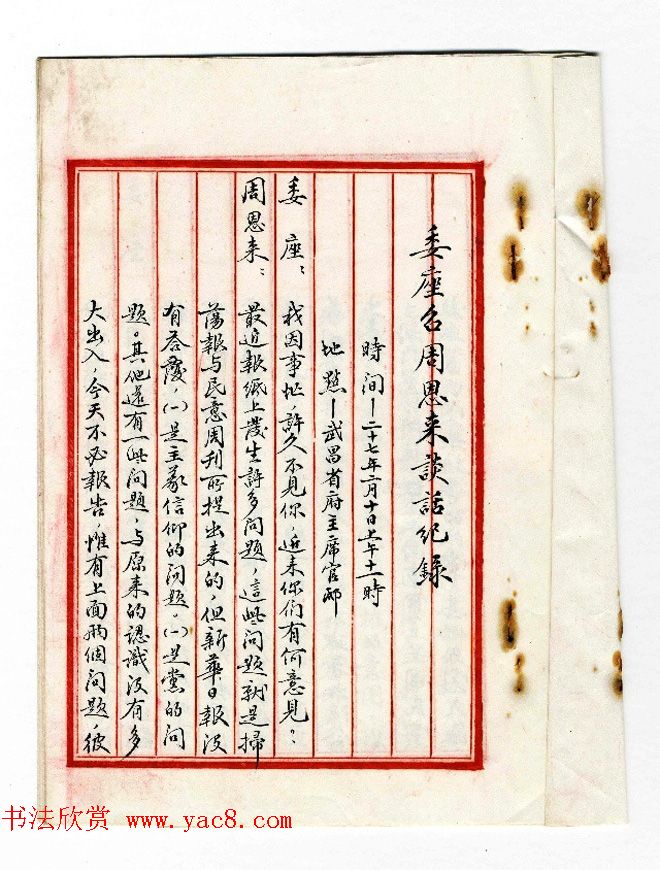 委座召周恩来談話纪錄
時間－二十七年二月十日上午十一時
地點－武昌省府主席官邸
委座：我因事忙，許久不見你，近来你们有何意見？
周恩来：最近報紙上發生許多问題，這些问題就是掃
蕩報与民意周刊所提出来的，但新華日報没
有答覆，(一)是主義信仰的问題，(一)是黨的问
題。其他還有一些问題，与原来的認識没有多
大出入，今天不必報告，惟有上面兩個问題，彼
书法欣赏 www.yac8.com